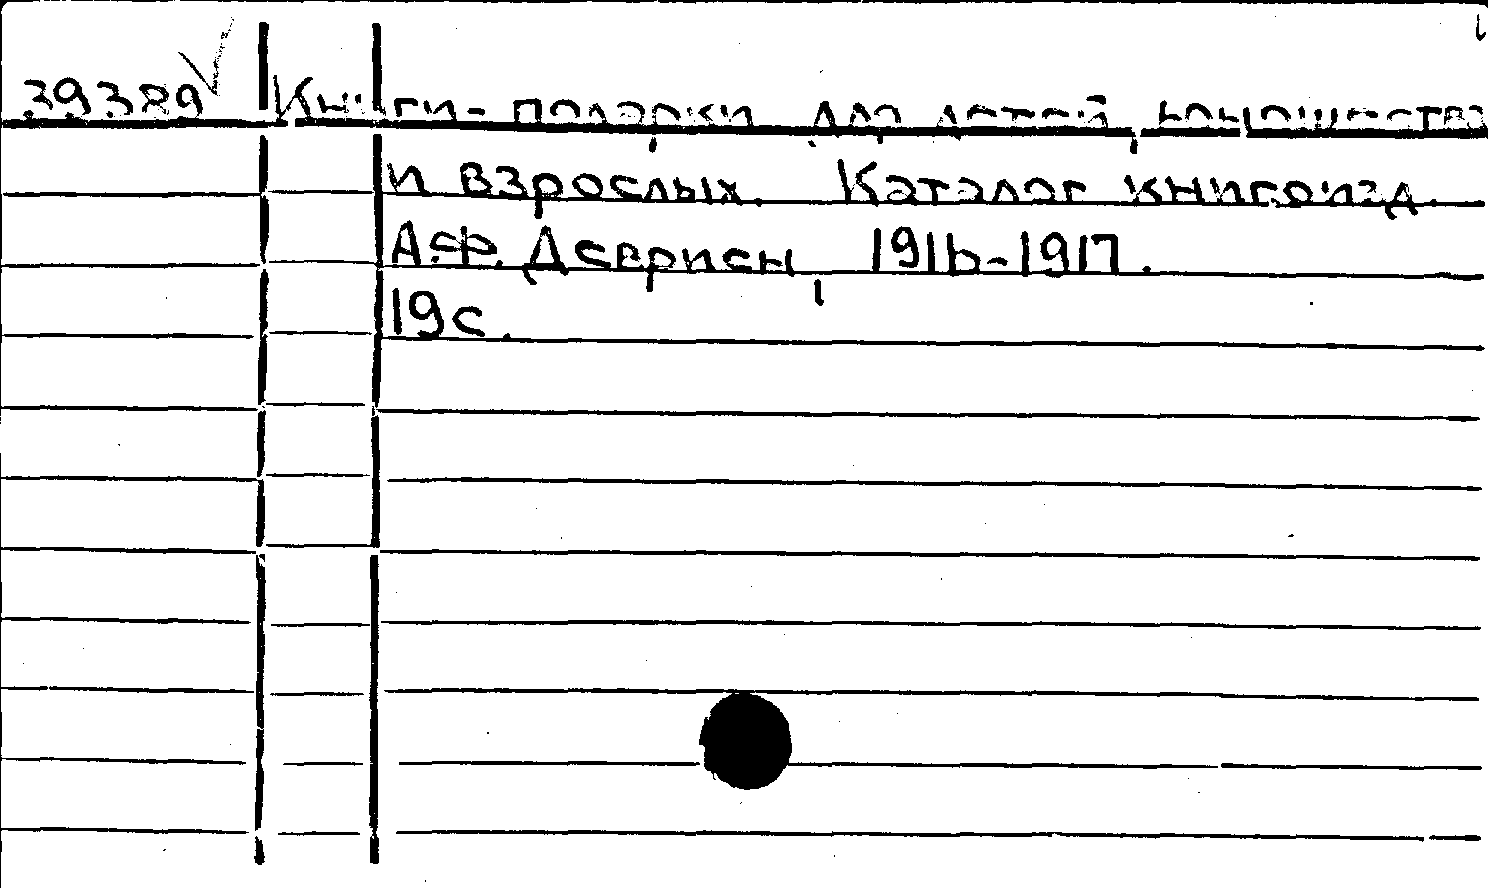 39389 Книги-подарки для детей, юношества
и взрослых. Каталог книгоизд.
А.Ф. Девриен, 1916-1917.
19с.